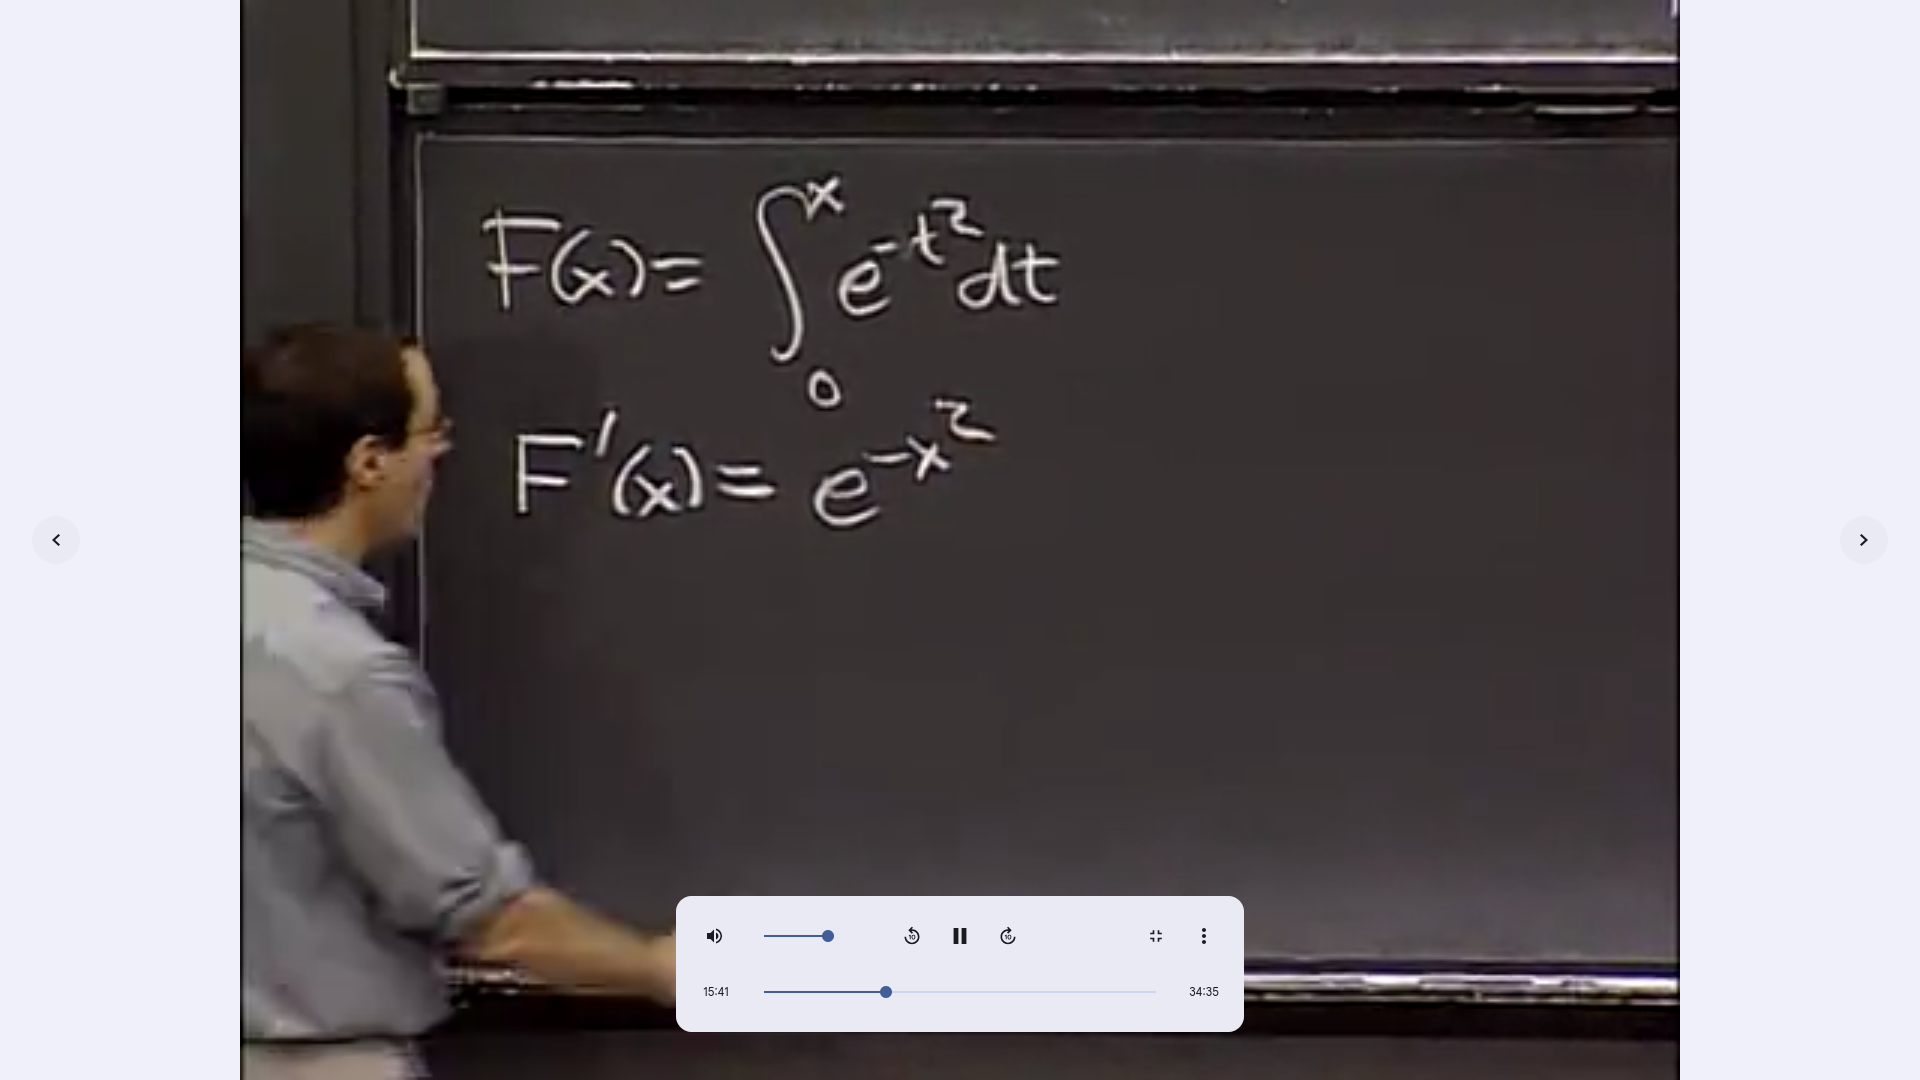 F(x) = ∫₀ˣ e^{-t²} dt
F'(x) = e^{-x²}
10 10
15:41 34:35